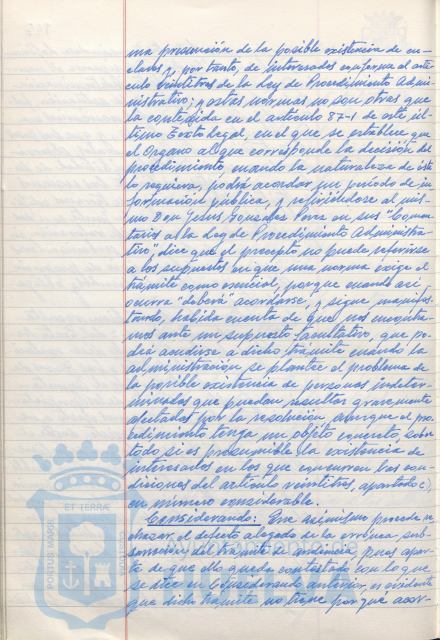 ma presunción de la posible existencia de en-
claves y, por tanto, de interesados conforme al artí-
culo veintitres de la Ley de Procedimiento Admi-
nistrativo; y estas normas no son otras que
la contenida en el artículo 87-1 de este úl-
timo Texto legal, en el que se establece que
el Organo al que corresponde la decisión del
procedimiento, cuando la naturaleza de éste
lo requiera, podrá acordar un período de in-
formación pública, y refiriéndose al mis-
mo Don Jesus Gonzalez Perez en sus "Comen-
tarios a la Ley de Procedimiento Administra-
tivo", dice que el precepto no puede referirse
a los supuestos en que una norma exige el
trámite como esencial, porque cuando así
ocurra "deberá" acordarse, y sigue manifes-
tando, habida cuenta de que nos encontra-
mos ante un supuesto facultativo, que po-
drá acudirse a dicho trámite cuando la
administración se plantee el problema de
la posible existencia de personas indeter-
minadas que puedan resultar gravemente
afectadas por la resolución, aunque el pro-
cedimiento tenga un objeto concreto, sobre
todo si es presumible la existencia de
interesados en los que concurran las con-
diciones del artículo veintitres, apartado c),
en número considerable.
Considerando: Que asimismo procede re-
chazar el defecto alegado de la errónea sub-
sanación del trámite de audiencia, pues apar-
te de que ello queda contestado con lo que
se dice en Considerando anterior, es evidente
que dicho trámite no tiene por qué acor-
PORTUS MARIS
ET TERRÆ
CUSTODIA